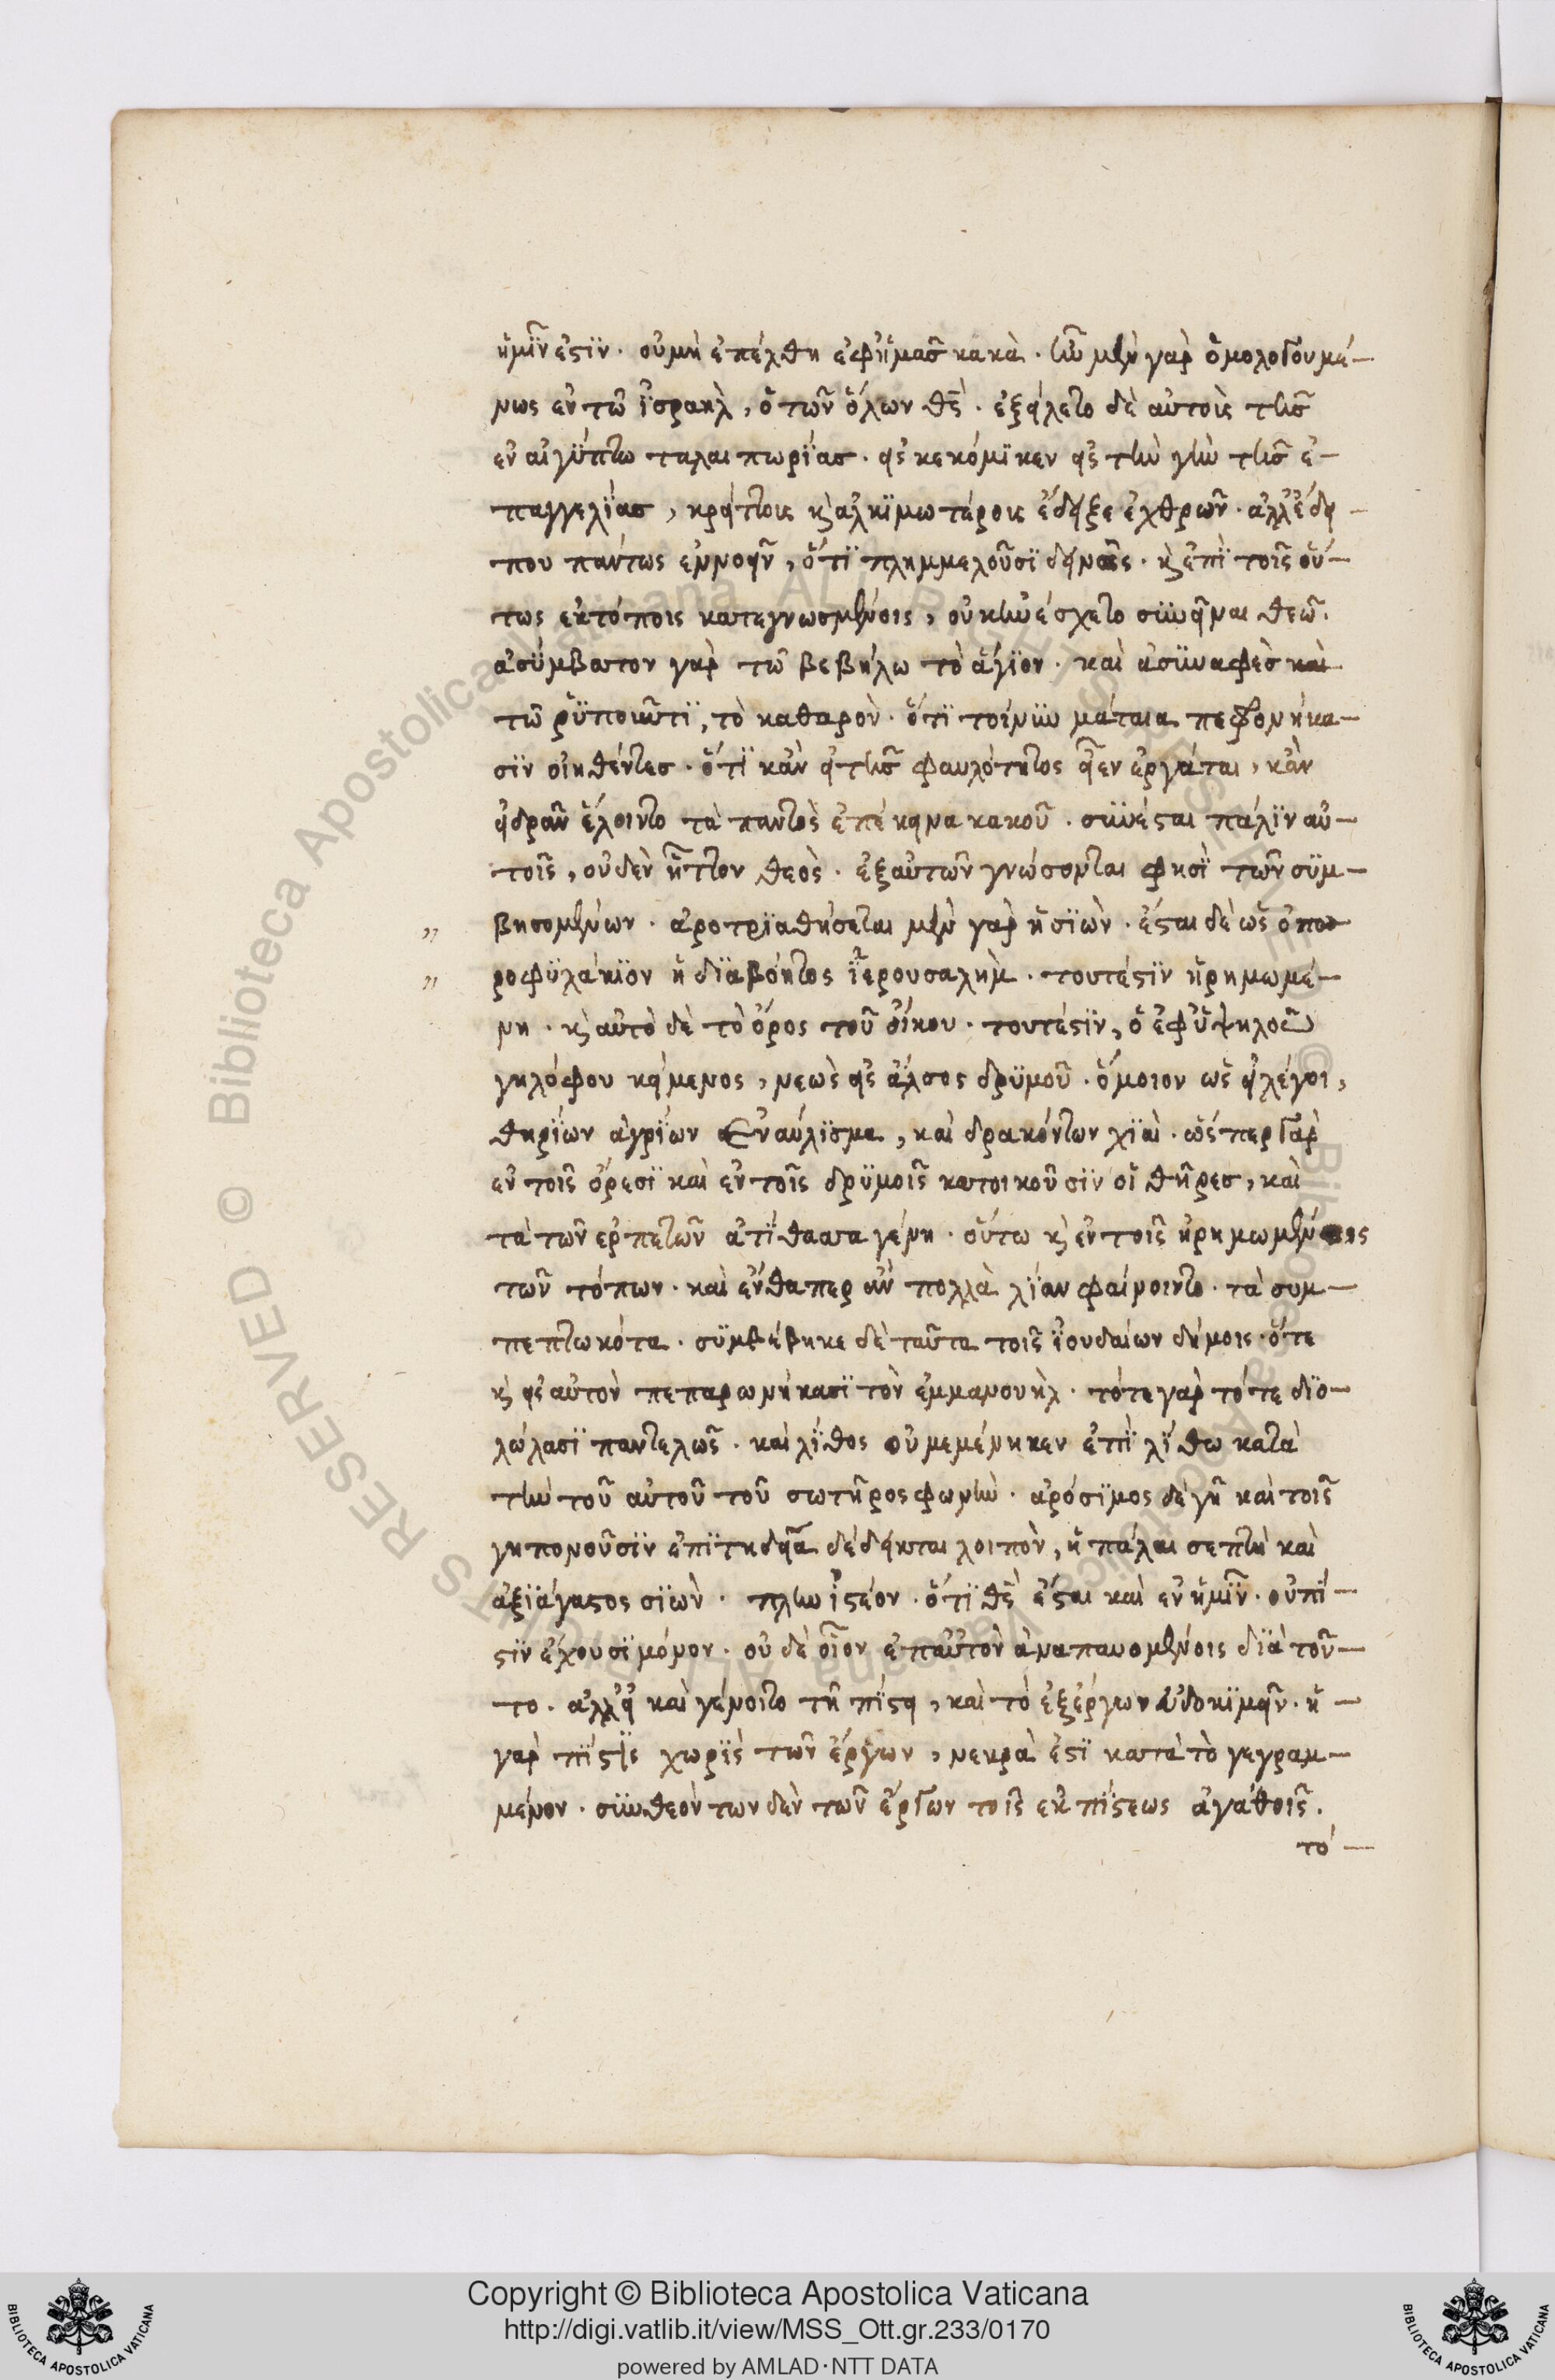 ἡμῖν ἐστίν. οὐ μὴ ἐπέλθη ἐφ' ἡμᾶς κακά. ἦν μὲν γὰρ ὁμολογουμέ-
νως ἐν τῶ ἰσραὴλ, ὁ τῶν ὅλων θς. ἐξείλετο δὲ αὐτοὺς τῆς
ἐν αἰγύπτω ταλαιπωρίας. εἰσκεκόμικεν εἰς τὴν γῆν τῆς ἐ-
παγγελίας, κρείττους κ ἀλκιμωτέρους ἔδειξε ἐχθρῶν. ἀλλ' ἔδει
που πάντως ἐννοεῖν, ὅτι πλημμελοῦσι δεινῶς. κ ἐπὶ τοῖς οὕ-
τως ἐκτόποις κατεγνωσμένοις, οὐκ ἠνέσχετο συνεῖναι θεῶ.
ἀσύμβατον γὰρ τῶ βεβήλω τὸ ἅγιον. καὶ ἀσυναφὲς καὶ
τῶ ῥυποῦντι, τὸ καθαρόν. ὅτι τοίνυν μάταια πεφρονήκα-
σιν οἰηθέντες. ὅτι κἂν εἰ τῆς φαυλότητος εἶεν ἐργάται, κἂν
εἰ δρᾶν ἕλοιντο τὰ παντὸς ἐπέκεινα κακοῦ. συνέσται πάλιν αὐ-
τοῖς, οὐδὲν ἧττον θεός. ἐξ αὐτῶν γνώσονται φησὶ τῶν συμ-
βησομένων. ἀροτριαθήσεται μὲν γὰρ ἡ σιών. ἔσται δὲ ὡς ὀπω
ροφυλάκιον ἡ διαβόητος ἱερουσαλήμ. τουτέστιν ἠρημωμέ-
νη. κ αὐτὸ δὲ τὸ ὄρος τοῦ οἴκου. τουτέστιν, ὁ ἐφ' ὑψηλοῦ
γηλόφου κείμενος, νεὼς εἰς ἄλσος δρυμοῦ. ὅμοιον ὡς εἰ λέγοι,
θηρίων ἀγρίων ἐναύλισμα, καὶ δρακόντων χιαὶ. ὥσπερ γὰρ
ἐν τοῖς ὄρεσι καὶ ἐν τοῖς δρυμοῖς κατοικοῦσιν οἱ θῆρες, καὶ
τὰ τῶν ἑρπετῶν ἀτίθασα γένη. οὕτω κ ἐν τοῖς ἠρημωμένοις
τῶν τόπων. καὶ ἔνθαπερ ἂν πολλὰ λίαν φαίνοιντο. τὰ συμ-
πεπτωκότα. συμβέβηκε δὲ ταῦτα τοῖς ἰουδαίων δήμοις. ὅτε
κ εἰς αὐτὸν πεπαρωνήκασι τὸν ἐμμανουήλ. τότε γὰρ τότε διο-
λώλασι παντελῶς. καὶ λίθος οὐ μεμένηκεν ἐπὶ λίθω κατὰ
τὴν τοῦ αὐτοῦ τοῦ σωτῆρος φωνήν. ἀρόσιμος δὲ γῆ καὶ τοῖς
γηπονοῦσιν ἐπιτηδεία δέδεικται λοιπόν, ἡ πάλαι σεπτὴ καὶ
ἀξιάγαστος σιών. πλὴν ἰστέον. ὅτι θς ἔσται καὶ ἐν ἡμῖν. οὐ πί-
στιν ἔχουσι μόνον. οὐδὲ οἷον ἐπ' αὐτὸν ἀναπαυομένοις διὰ τοῦ-
το. ἀλλ' εἰ καὶ γένοιτο τῆ πίστει, καὶ τὸ ἐξ ἔργων εὐδοκιμεῖν. ἡ
γὰρ πίστις χωρὶς τῶν ἔργων, νεκρὰ ἐστὶ κατὰ τὸ γεγραμ-
μένον. συνθεόντων δὲν τῶν ἔργων τοῖς ἐκ πίστεως ἀγαθοῖς.
τό-
Copyright © Biblioteca Apostolica Vaticana
http://digi.vatlib.it/view/MSS_Ott.gr.233/0170
powered by AMLAD·NTT DATA